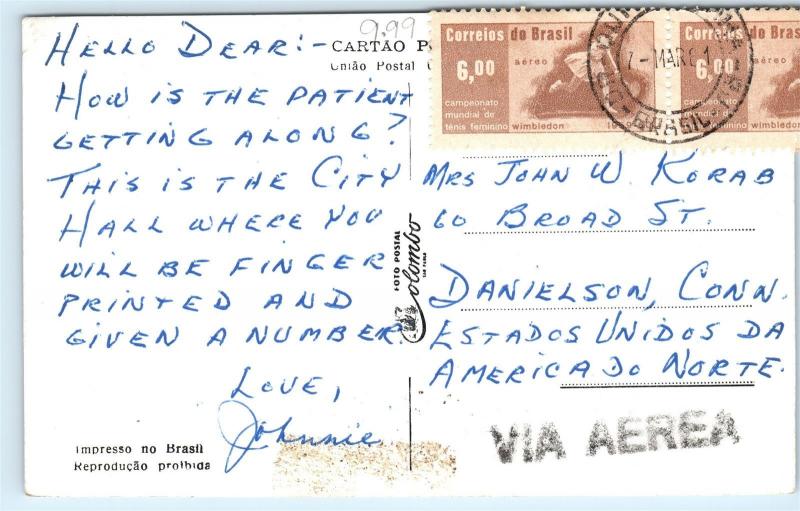 9.99
HELLO DEAR:-
HOW IS THE PATIENT
GETTING ALONG?
THIS IS THE CITY
HALL WHERE YOU
WILL BE FINGER
PRINTED AND
GIVEN A NUMBER
LOVE,
Johnnie
Impresso no Brasil
Reprodução proibida
CARTÃO
União Postal
FOTO POSTAL
Colombo
Correios do Brasil
6,00
aéreo
campeonato
mundial de
tênis feminino wimbledon
Correios
6,00
aéreo
campeonato
mundial de
tênis feminino wimbledon
7-MAR 61
BRASIL
MRS JOHN W. KORAB
60 BROAD ST.
DANIELSON, CONN.
ESTADOS UNIDOS DA
AMERICA DO NORTE.
VIA AEREA